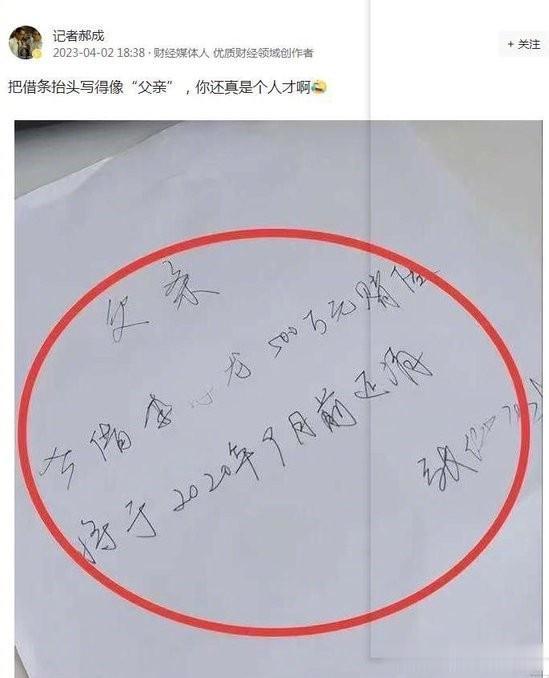 记者郝成
2023-04-02 18:38 · 财经媒体人 优质财经领域创作者
+ 关注
把借条抬头写得像“父亲”，你还真是个人才啊😂
父亲
今借李 龙500万元赌
将于2020年9月前还清